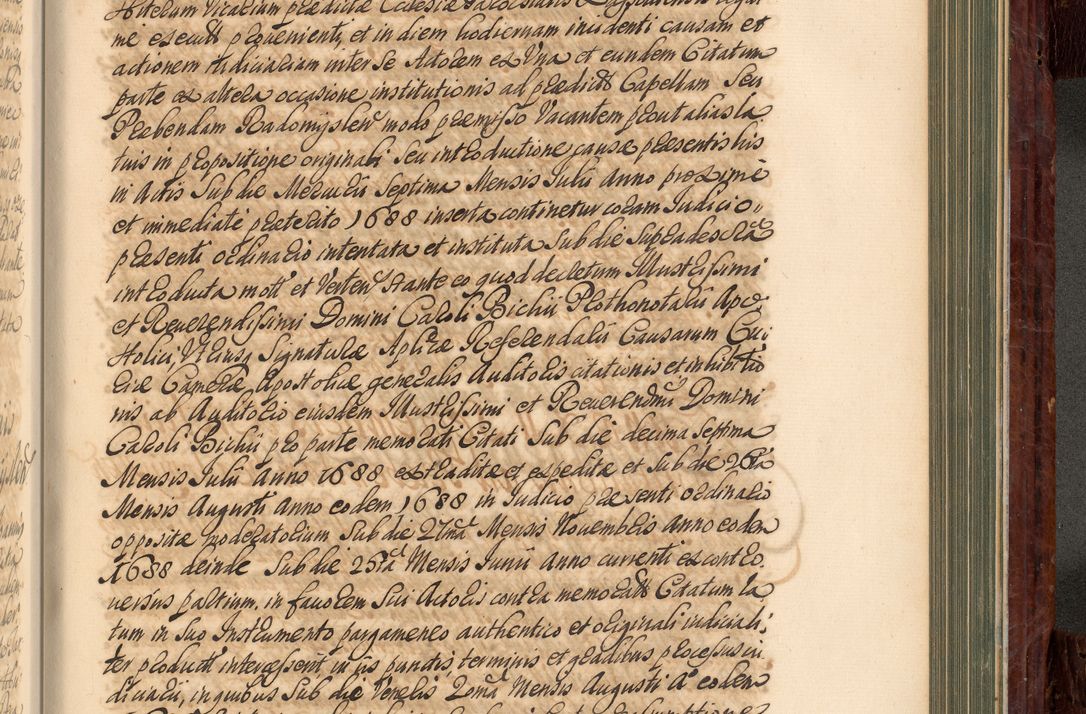 me esecutt provenienti, et in diem hodiernam incidenti causam et
actionem Judiciariam inter se Actorem ex Una et eundem Citatum
parte ex altera occasione institutionis ad praedictt Capellam Seu
Praebendam Radomyslen modo praemisso Vacantem prout alias la
tius in propositione originali seu introductione causae praesentis his
in Actis Sub die Mercurii Septima Mensis Julii Anno proxime
et immediate praeterito 1688 inserta continetur coram Judicio
praesenti ordinario intentata et instituta Sub die Supradescrta
introducta mott et Verten Stante eo quod decretum Illustrissimi
et Reverendissimi Domini Caroli Bichii Prothonotarii Apo
stolici, Utriusq Signaturae Aplicae Referendarii Causarum Cu
riae Camerae Apostolicae generalis Auditoris citationis et inhibitio
nis ab Auditorio eiusdem Illustrissimi et Reverendmi Domini
Caroli Bichii pro parte memorati Citati Sub die decima septima
Mensis Julii Anno 1688 extraditae et expeditae et Sub die 26ta
Mensis Augusti Anno eodem 1688 in Judicio praesenti ordinario
oppositae moderatorium Sub die 27ma Mensis Novembris Anno eodem
1688 deinde Sub die 25ta Mensis Junii Anno currenti ex contro
versiis partium, in favorem Sui Actoris contra memoratt Citatum la
tum in Suo Instrumento pargameneo authentico et originali iudiciali
ter productt interessent in iis punctis terminis et gradibus processus iu
diciarii, in quibus Sub die Veneris 2oma Mensis Augusti Ao eodem